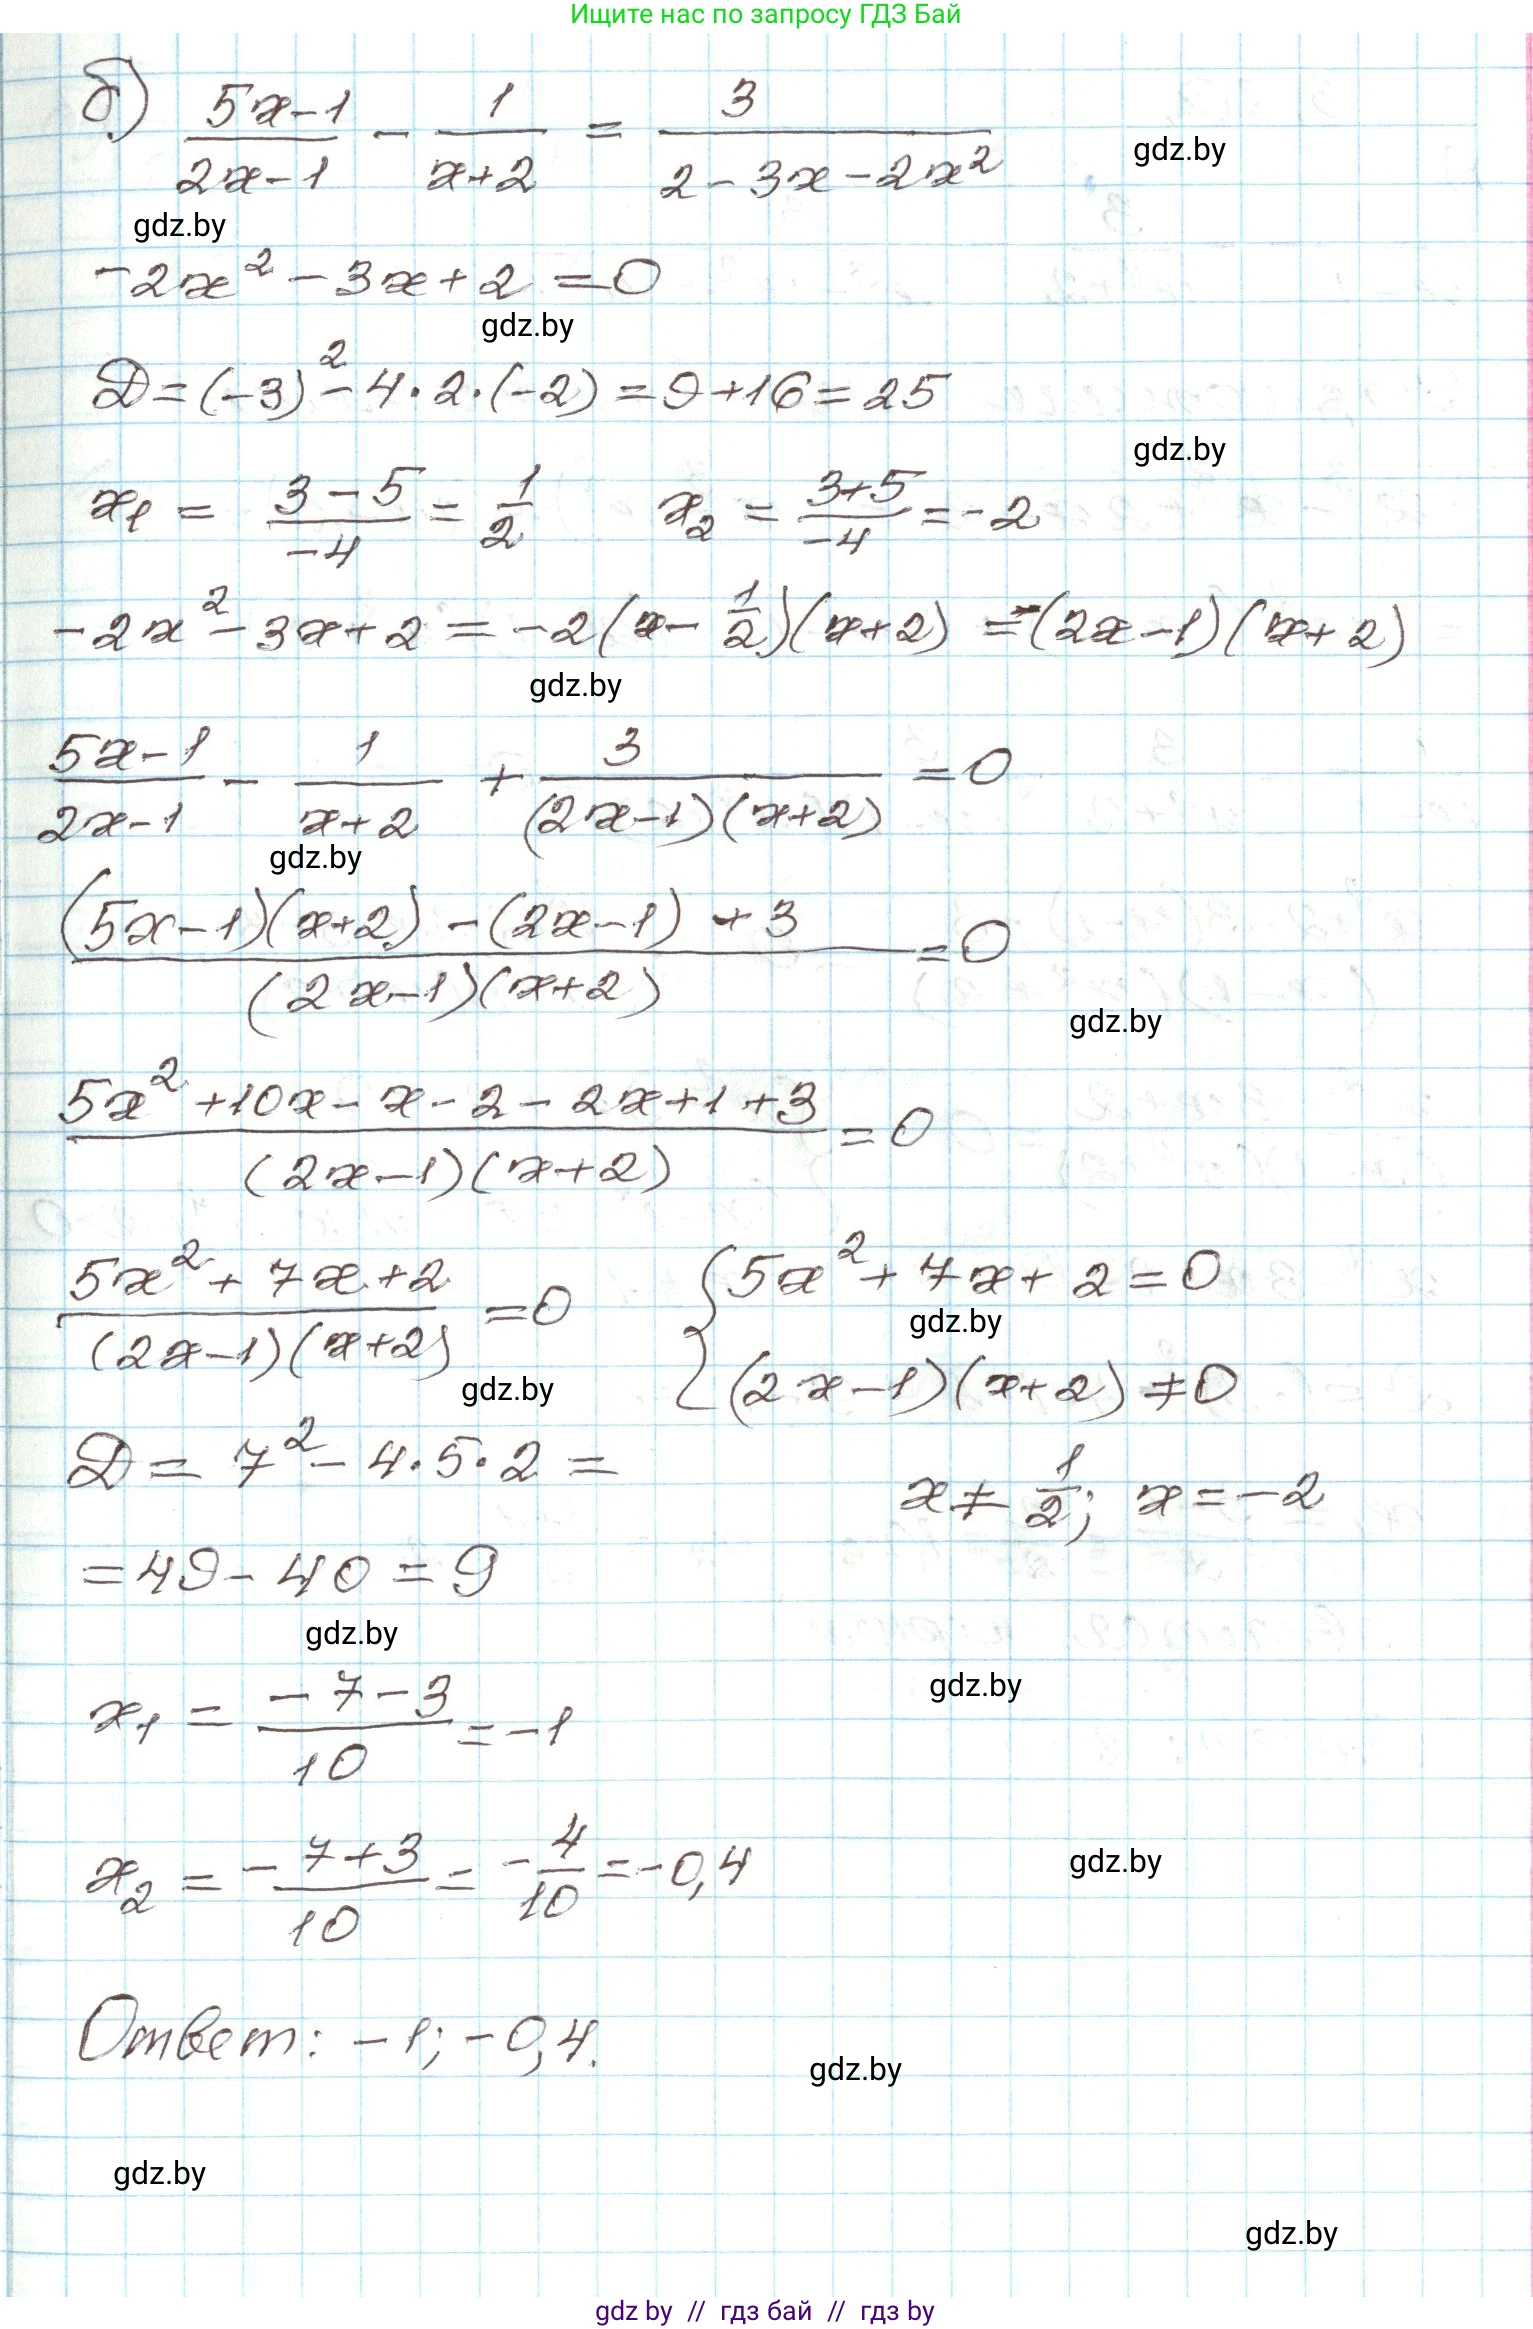 Ищите нас по запросу ГДЗ Бай
б) (5x-1)/(2x-1) - 1/(x+2) = 3/(2-3x-2x²)
gdz.by
gdz.by
-2x² - 3x + 2 = 0
gdz.by
D = (-3)² - 4·2·(-2) = 9+16 = 25
gdz.by
x₁ = (3-5)/(-4) = 1/2 x₂ = (3+5)/(-4) = -2
-2x² - 3x + 2 = -2(x - 1/2)(x+2) = -(2x-1)(x+2)
gdz.by
(5x-1)/(2x-1) - 1/(x+2) + 3/((2x-1)(x+2)) = 0
gdz.by
((5x-1)(x+2) - (2x-1) + 3)/((2x-1)(x+2)) = 0
gdz.by
(5x² + 10x - x - 2 - 2x + 1 + 3)/((2x-1)(x+2)) = 0
(5x² + 7x + 2)/((2x-1)(x+2)) = 0 { 5x² + 7x + 2 = 0
gdz.by
(2x-1)(x+2) ≠ 0
gdz.by
D = 7² - 4·5·2 =
x ≠ 1/2; x = -2
= 49 - 40 = 9
gdz.by
gdz.by
x₁ = (-7-3)/10 = -1
x₂ = (-7+3)/10 = -4/10 = -0,4
gdz.by
Ответ: -1; -0,4.
gdz.by
gdz.by
gdz.by
gdz by // гдз бай // гдз by